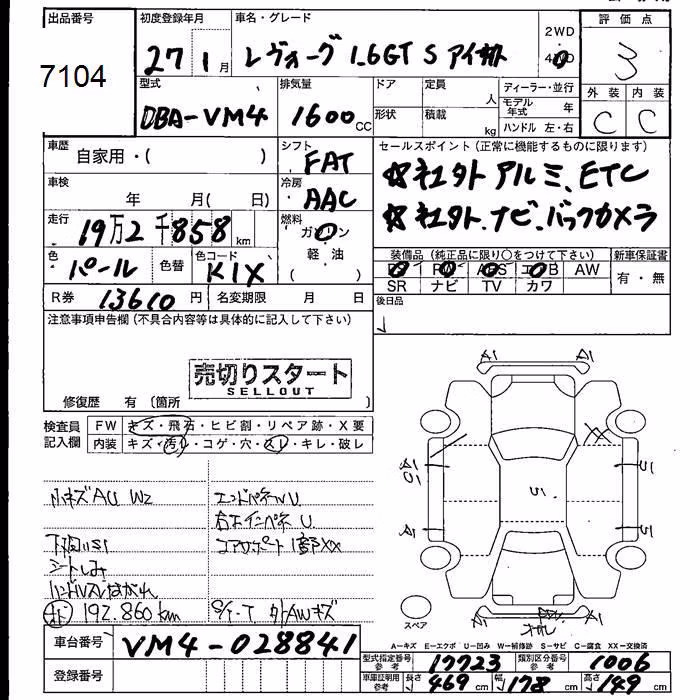 出品番号
7104
初度登録年月
27 1月
車名・グレード
レヴォーグ 1.6GT S アイサイト
2WD
4WD
評価点
3
外装 内装
C C
型式
DBA-VM4
排気量
1600 CC
ドア
形状
定員
人
積載
kg
ディーラー・並行
モデル年式 年
ハンドル 左・右
車歴
自家用・( )
シフト
FAT
セールスポイント(正常に機能するものに限ります)
☆社外アルミ、ETC
☆社外.ナビ.バックカメラ
車検
年 月( 日)
冷房
AAC
走行
19万2千858km
燃料
ガソリン
軽・油
( )
色
パール
色替
色コード
K1X
装備品(純正品に限り○をつけて下さい)
AW
SR ナビ TV カワ
新車保証書
有・無
R券 13610円
名変期限 月 日
後日品
注意事項申告欄(不具合内容等は具体的に記入して下さい)
売切りスタート
SELLOUT
修復歴 有(箇所 )
検査員記入欄
FW キズ・飛石・ヒビ割・リペア跡・X要
内装 キズ・汚れ・コゲ・穴・スレ・キレ・破レ
小キズAU W2
エンドパネルU
右リヤインパネU
下回りS1
コアサポート1部XX
シートしみ
192.860km
外AWキズ
A1 A1
A1
A1
A1 A1
スペア
A−キズ E−エクボ U−凹み W−補修跡 S−サビ C−腐食 XX−交換済
車台番号
VM4-028841
登録番号
型式指定番号参考 17723
類別区分番号参考 1006
車庫証明用参考 長さ 469cm 幅 178cm 高さ 149cm